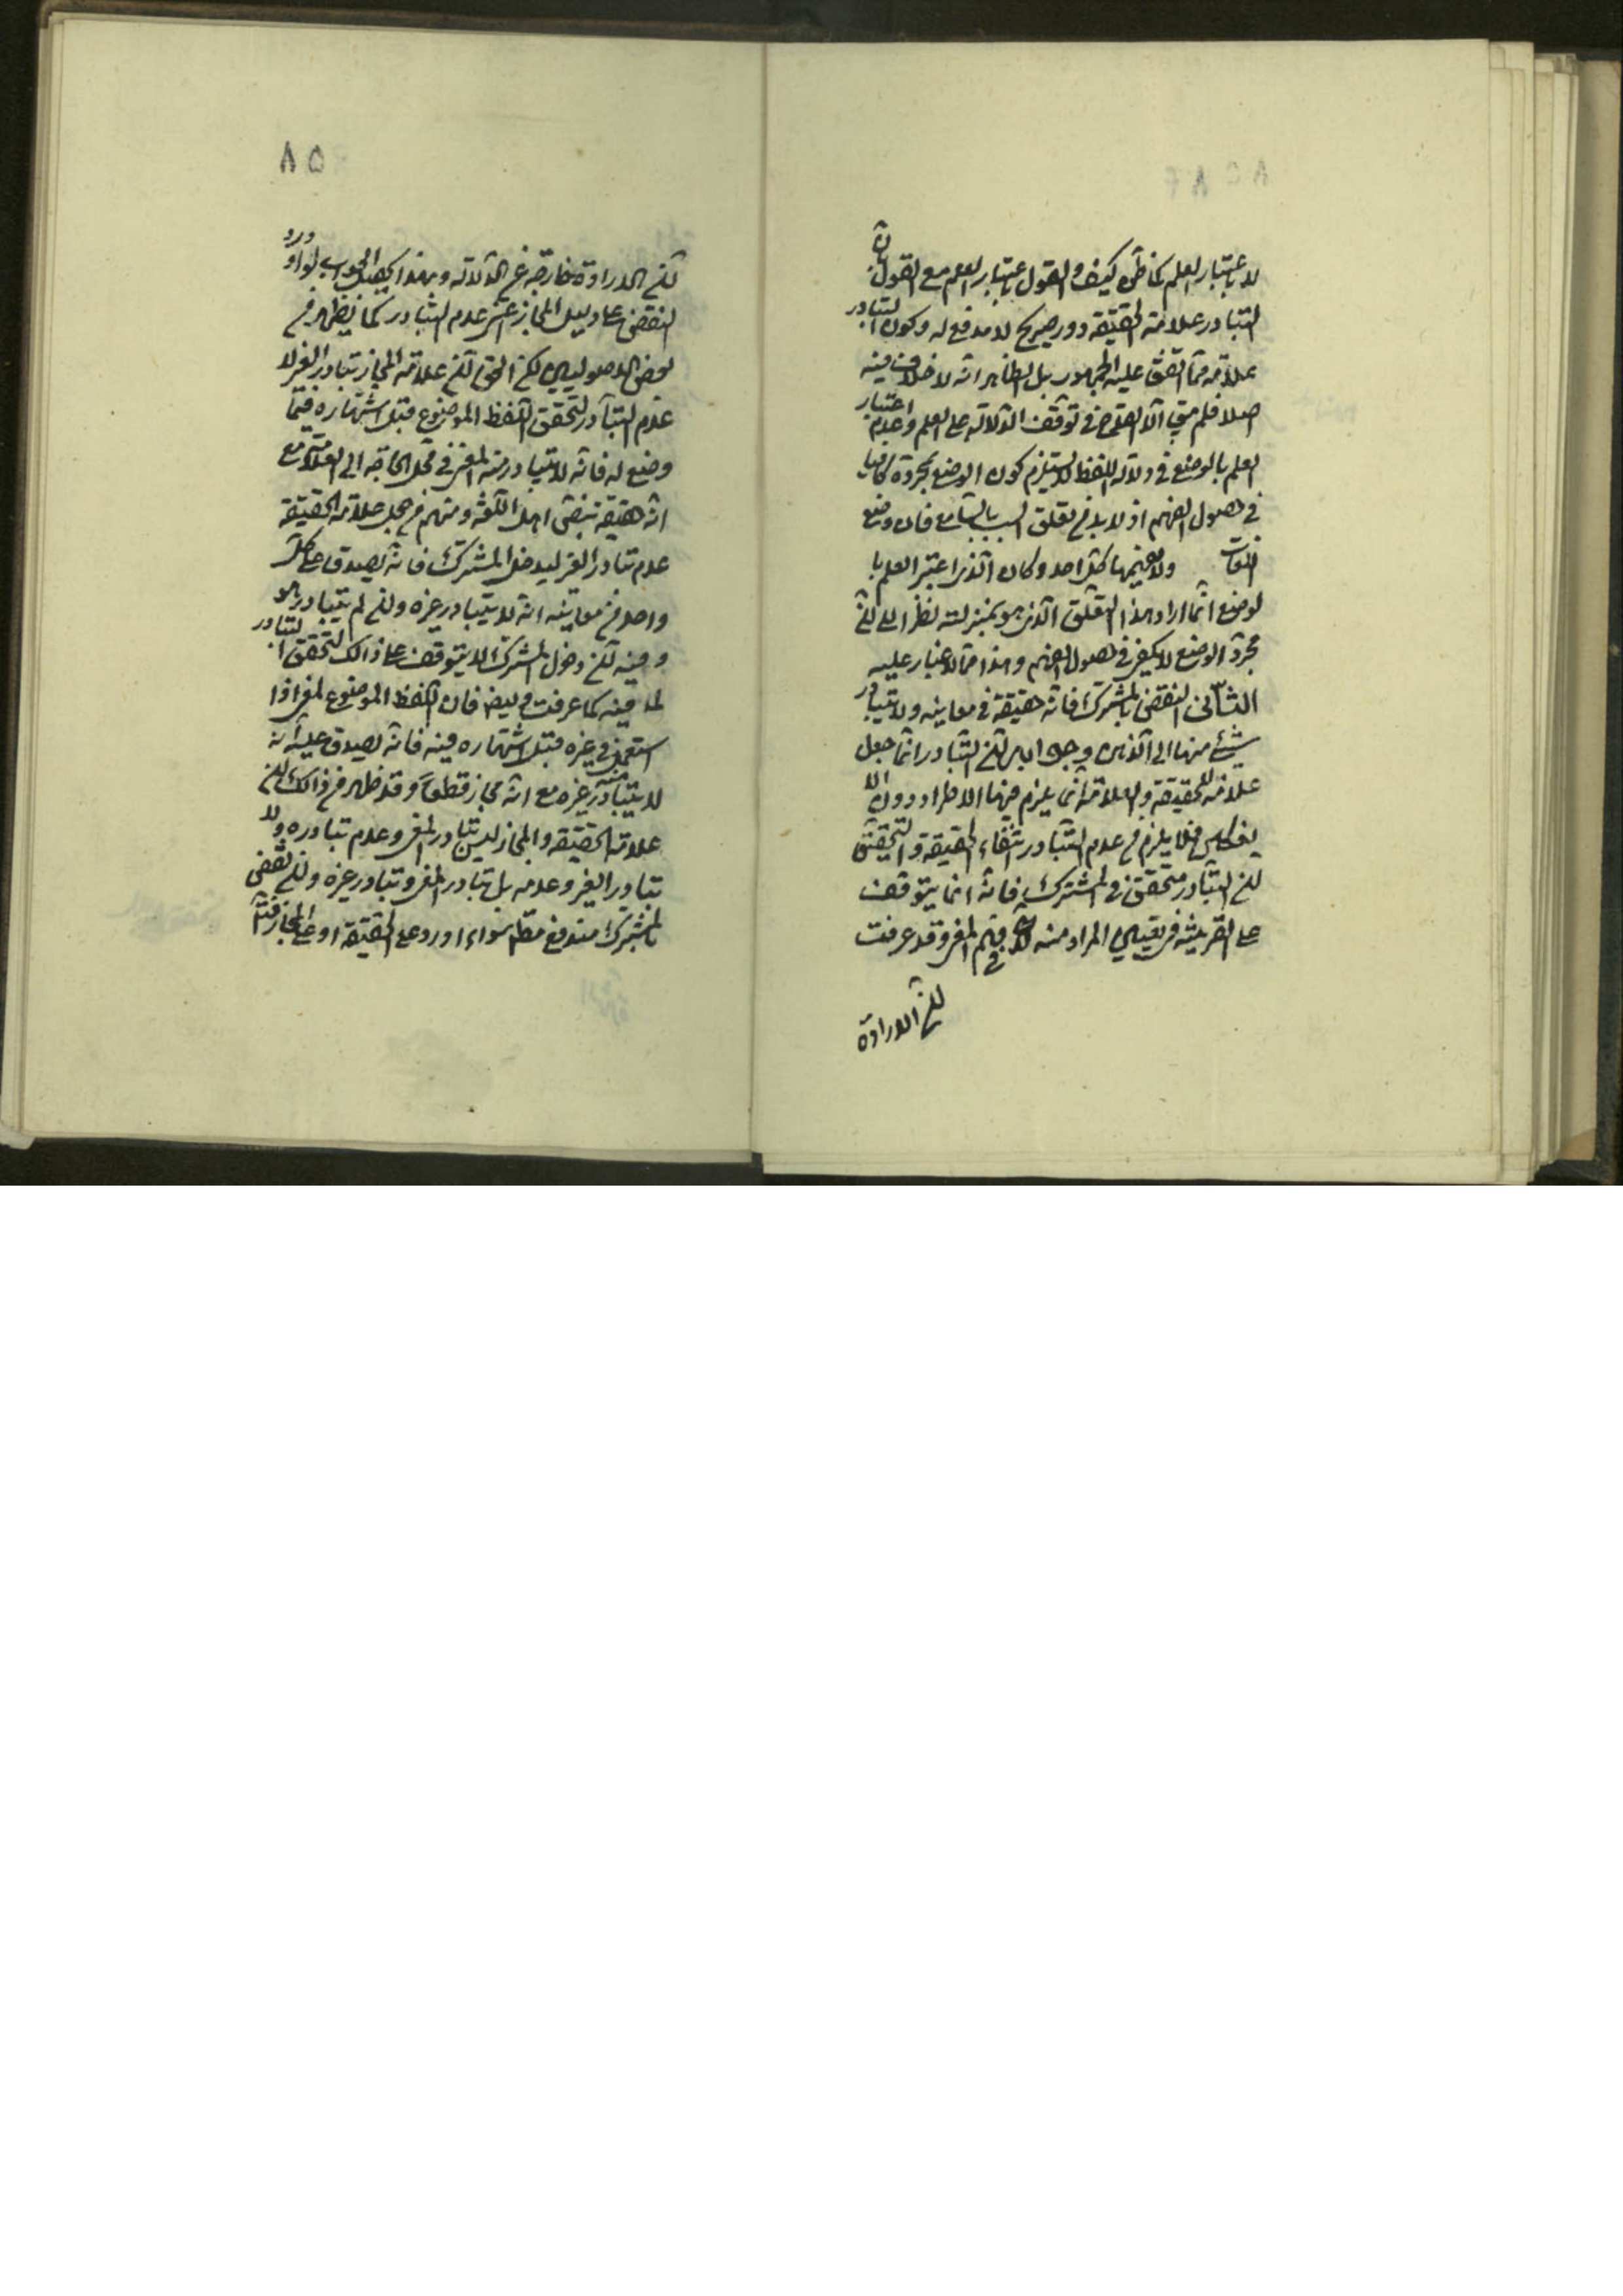 لا باعتبار العلم كما ظن كيف والقول باعتبار العلم مع القول بان
التبادر علامة الحقيقة دور صريح لا مدفع له وكون التبادر
علامة مما اتفق عليه الجمهور بل الظاهر انه لا خلاف فيه
اصلا فلم يبق الا القدح في توقف الدلالة على العلم وعدم اعتبار
العلم بالوضع في دلالة اللفظ لا يستلزم كون الوضع بمجرده كافيا
في حصول الفهم اذ لا بد من تعلق السبب بالسامع فان وضع
اللغات ولا يفهمها كل احد وكان الذي اعتبر العلم با
لوضع انما اراد هذا التعلق الذي هو بمنزلته نظرا الى ان
مجرد الوضع لا يكفي في حصول الفهم وهذا مما لا غبار عليه
الثاني النقض بالمشترك فانه حقيقة في معانيه ولا يتبادر
شيئ منها الى الذهن وجوابه ان التبادر انما جعل
علامة للحقيقة والعلامة انما يلزم فيها الاطراد دون الا
نعكاس فلا يلزم من عدم التبادر انتفاء الحقيقة والتحقيق
ان التبادر متحقق في المشترك فانه انما يتوقف
على القرينة في تعيين المراد منه لا في فهم المعنى وقد عرفت
ان الارادة
٨٥
ان الارادة خارجة عن الدلالة وبهذا يحصل الجواب لو اورد
النقض على دليل المجاز اعنى عدم التبادر كما يظهر من
بعض الاصوليين لكن الحق ان علامة المجاز تبادر الغير لا
عدم التبادر لتحقق اللفظ الموضوع قبل اشتهاره فيما
وضع له فانه لا يتبادر منه المعنى في محل الحاجة الى العلامة مع
انه حقيقة بنص اهل اللغة ومنهم من جعل علامة الحقيقة
عدم تبادر الغير ليدخل المشترك فانه يصدق على كل
واحد من معانيه انه لا يتبادر غيره وان لم يتبادر هو
وفيه ان دخول المشترك لا يتوقف على ذالك لتحقق التبادر
فيه كما عرفت وايضا فان اللفظ الموضوع لمعنى اذا
استعمل في غيره قبل اشتهاره فيه فانه يصدق عليه انه
لا يتبادر منه غيره مع انه مجاز قطعا وقد ظهر من ذالك ان
علامة الحقيقة والمجاز ليس تبادر المعنى وعدم تبادره ولا
تبادر الغير وعدمه بل تبادر المعنى وتبادر غيره وان نقض
بالمشترك مندفع مطلقا سواء اورد على الحقيقة او على المجاز